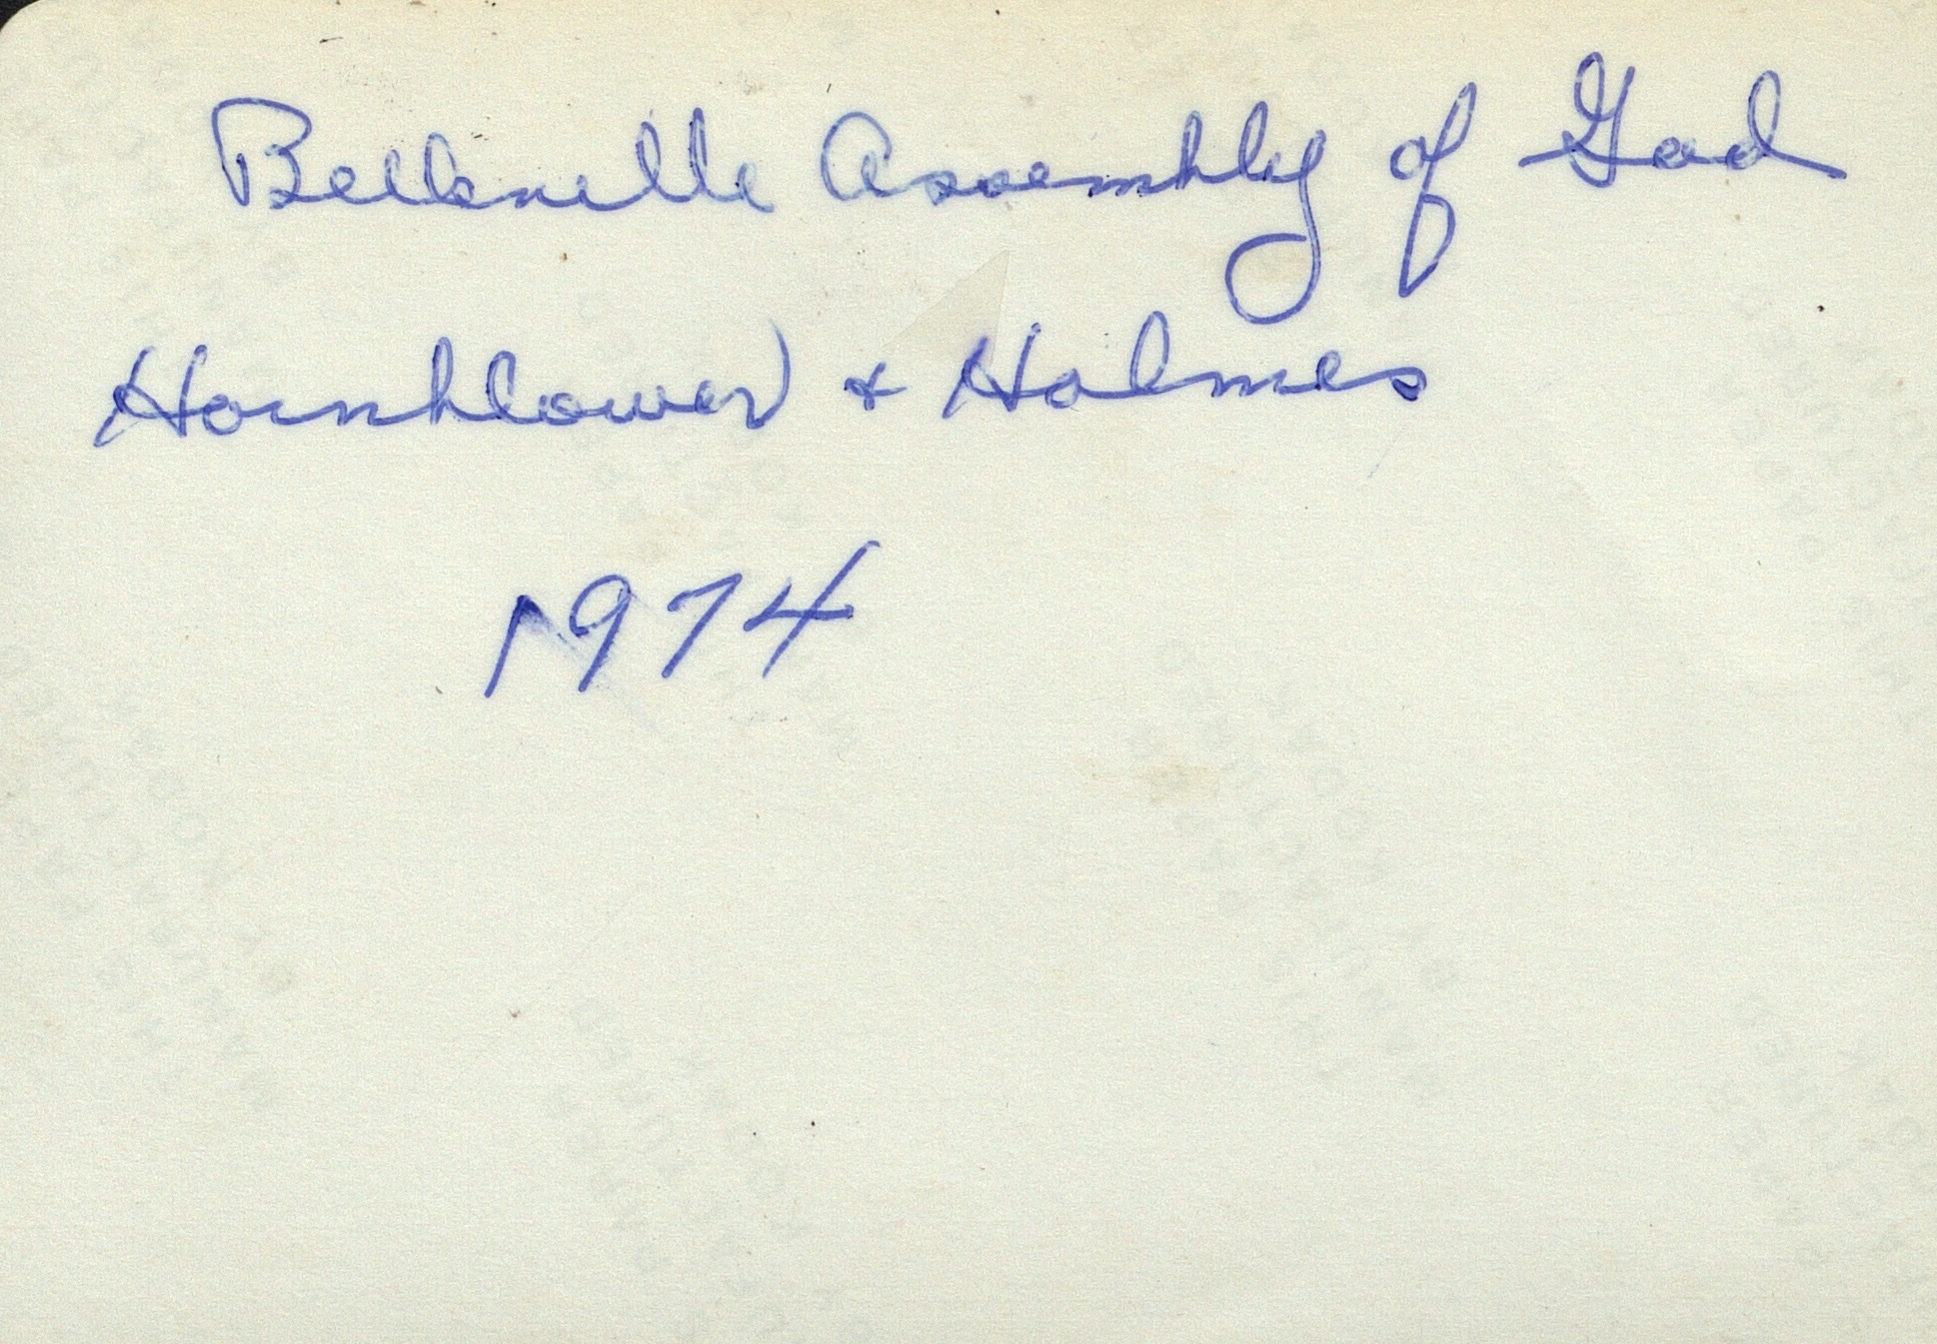 Belleville Assembly of God
Hornblower & Holmes
1974